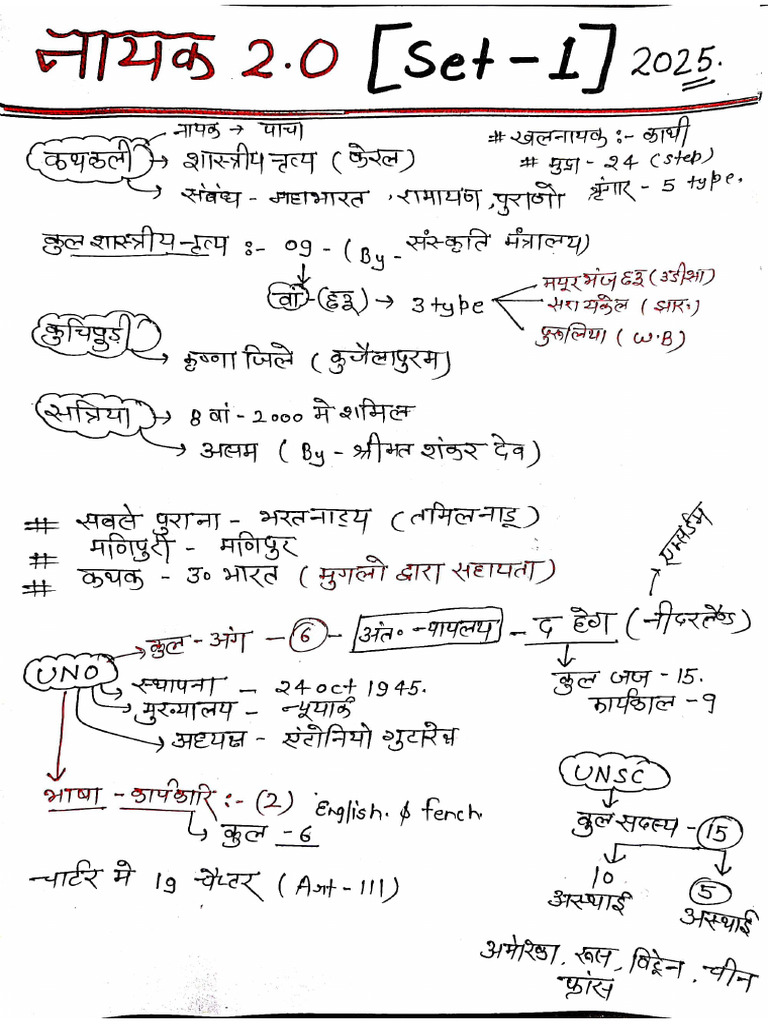 नायक 2.0 [Set-1] 2025.
नायक → पाचा
कथकली → शास्त्रीय नृत्य (केरल)
→ संबंध - महाभारत, रामायण, पुराणो
# खलनायक :- काथी
# मुद्रा - 24 (step)
श्रृंगार - 5 type.
कुल शास्त्रीय-नृत्य :- 09 - (By - संस्कृति मंत्रालय)
वां - (छऊ) → 3 type
मयूरभंज छऊ (उडीसा)
सरायकेल (झार०)
पुरूलिया (W.B)
कुचिपुड़ी
→ कृष्णा जिले (कुजैलापुरम)
सत्रिया → 8 वां - 2000 मे शामिल
→ असम (By - श्रीमत शंकर देव)
# सबसे पुराना - भरतनाट्य (तमिलनाडू)
# मणिपुरी - मणिपुर
# कथक - उ० भारत (मुगलो द्वारा सहायता)
एम्सर्डम
कुल - अंग - 6 - अंत० - न्यायलय - द हेग (नीदरलैण्ड)
कुल जज - 15.
कार्यकाल - 9
UNO
→ स्थापना - 24 oct 1945.
→ मुख्यालय - न्यूयार्क
→ अध्यक्ष - एंटोनियो गुटारेस
भाषा - कार्यकारि :- (2) English. & fench.
→ कुल - 6
चार्टर मे 19 चैप्टर (Art - 111)
UNSC
कुल सदस्य - 15
10
अस्थाई
5
अस्थाई
अमेरिका, रूस, ब्रिटेन, चीन
फ्रांस